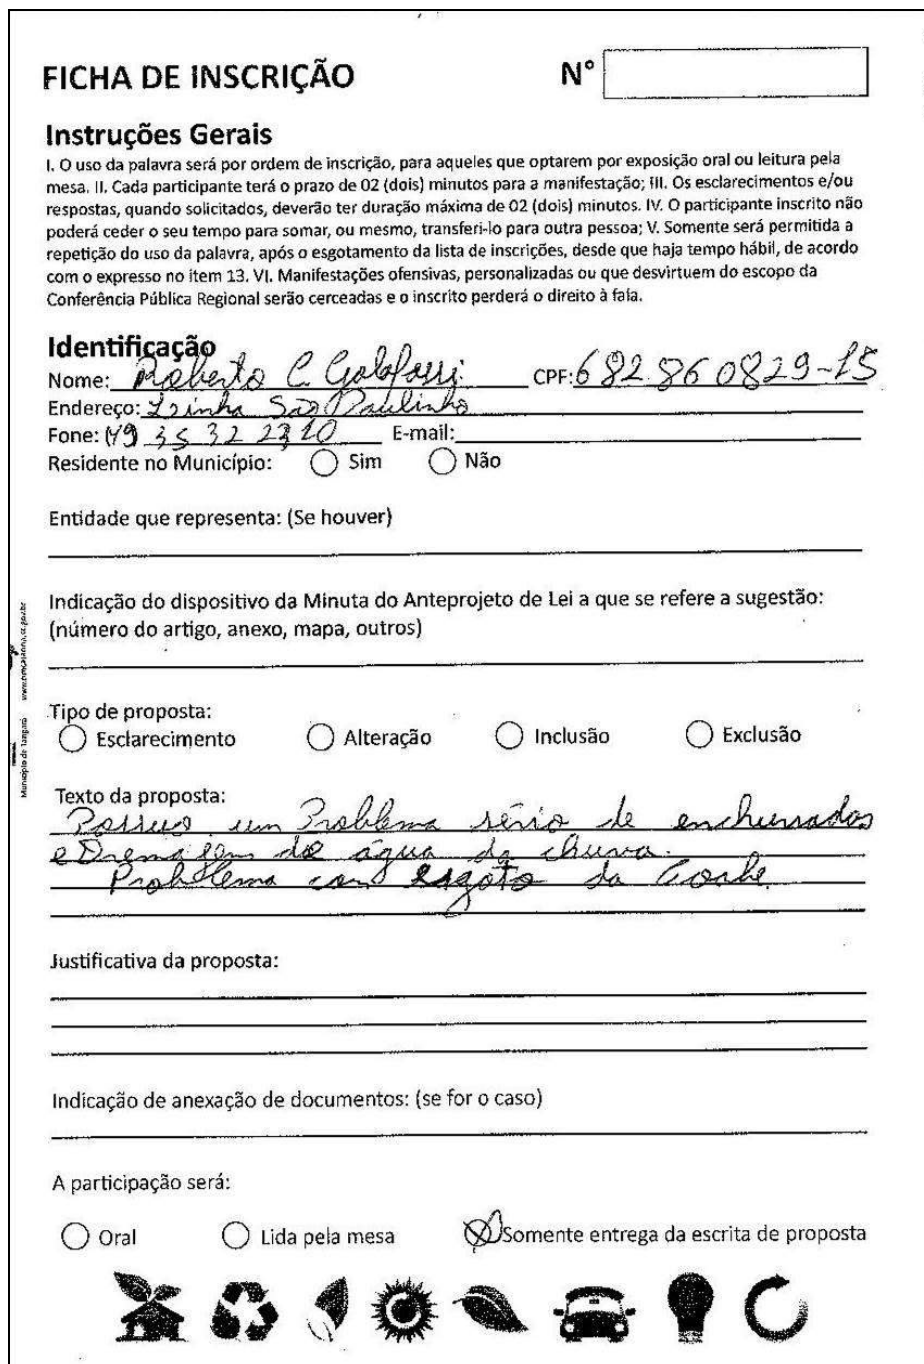 FICHA DE INSCRIÇÃO
N°
Instruções Gerais
I. O uso da palavra será por ordem de inscrição, para aqueles que optarem por exposição oral ou leitura pela
mesa. II. Cada participante terá o prazo de 02 (dois) minutos para a manifestação; III. Os esclarecimentos e/ou
respostas, quando solicitados, deverão ter duração máxima de 02 (dois) minutos. IV. O participante inscrito não
poderá ceder o seu tempo para somar, ou mesmo, transferi-lo para outra pessoa; V. Somente será permitida a
repetição do uso da palavra, após o esgotamento da lista de inscrições, desde que haja tempo hábil, de acordo
com o expresso no item 13. VI. Manifestações ofensivas, personalizadas ou que desvirtuem do escopo da
Conferência Pública Regional serão cerceadas e o inscrito perderá o direito à fala.
Identificação
Nome: Roberto C. CPF: 682 860829-15
Endereço: Linha São Paulinho
Fone: (49 35 32 E-mail:
Residente no Município: Sim Não
Entidade que representa: (Se houver)
Indicação do dispositivo da Minuta do Anteprojeto de Lei a que se refere a sugestão:
(número do artigo, anexo, mapa, outros)
Tipo de proposta:
Esclarecimento Alteração Inclusão Exclusão
Texto da proposta:
Possuo um Problema sério de enchurradas
e Drenagem de água da chuva.
Problema com esgoto da
Justificativa da proposta:
Indicação de anexação de documentos: (se for o caso)
A participação será:
Oral Lida pela mesa Somente entrega da escrita de proposta
Município de Tangará